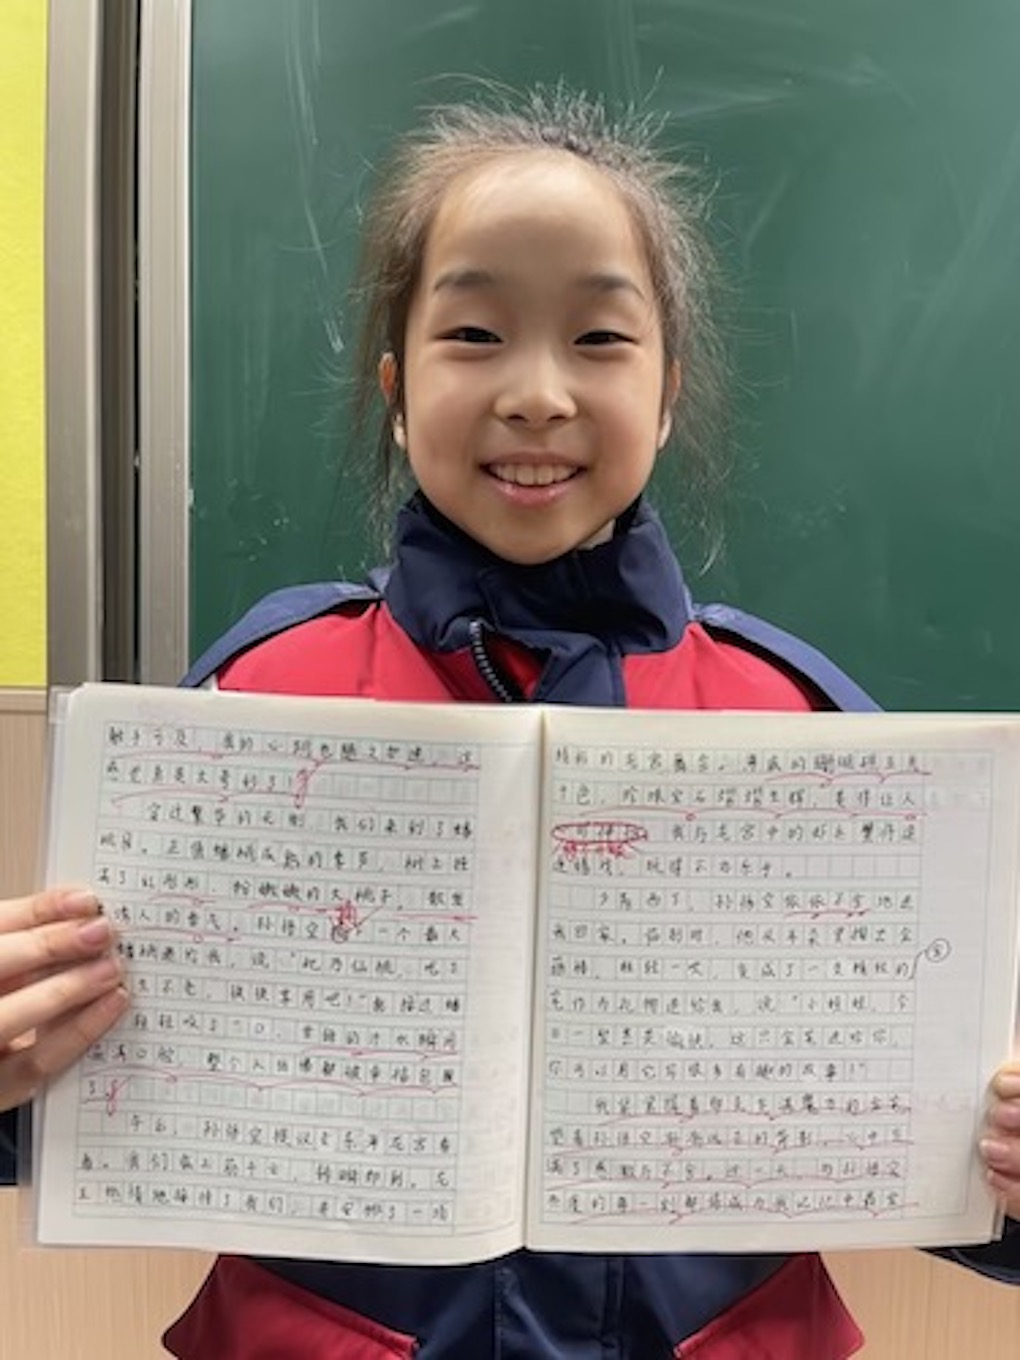 触手可及，我的心跳也随之加速，这
感觉真是太奇妙了！
穿过繁华的天街，我们来到了蟠
桃园。正值蟠桃成熟的季节，树上挂
满了红彤彤、粉嫩嫩的大桃子，散发
诱人的香气。孙悟空摘下一个最大
蟠桃递给我，说："此乃仙桃，吃了
生不老，快快享用吧！"我接过蟠
轻轻咬了一口，甘甜的汁水瞬间
满口腔，整个人仿佛都被幸福包围
了。
午后，孙悟空提议去东海龙宫看
看。我们驾上筋斗云，转瞬即到。龙
王热情地接待了我们，并安排了一场
精彩的龙宫舞会。海底的珊瑚五光
十色，珍珠宝石熠熠生辉，美得让人
我与龙宫中的虾兵蟹将
玩得不亦乐乎。
夕阳西下，孙悟空依依不舍地送
我回家。临别时，他从耳朵里掏出金
箍棒，轻轻一吹，变成了一支精致的
笔作为礼物送给我，说："小姑娘，今
日一聚甚是愉快，这只金笔送给你，
你可以用它写很多有趣的故事！"
我紧紧握着那支充满魔力的金笔，
望着孙悟空渐渐远去的背影，心中充
满了感激与不舍。这一天，与孙悟空
共度的每一刻都将成为我记忆中最宝